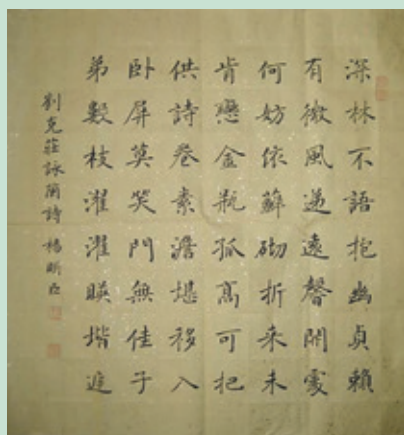 深林不語抱幽貞賴
有微風遞遠馨開處
何妨依蘚砌折來未
肯戀金瓶孤高可把
供詩卷素澹堪移入
卧屏莫笑門無佳子
弟數枝濯濯暎堦庭
劉克莊詠蘭詩 楊